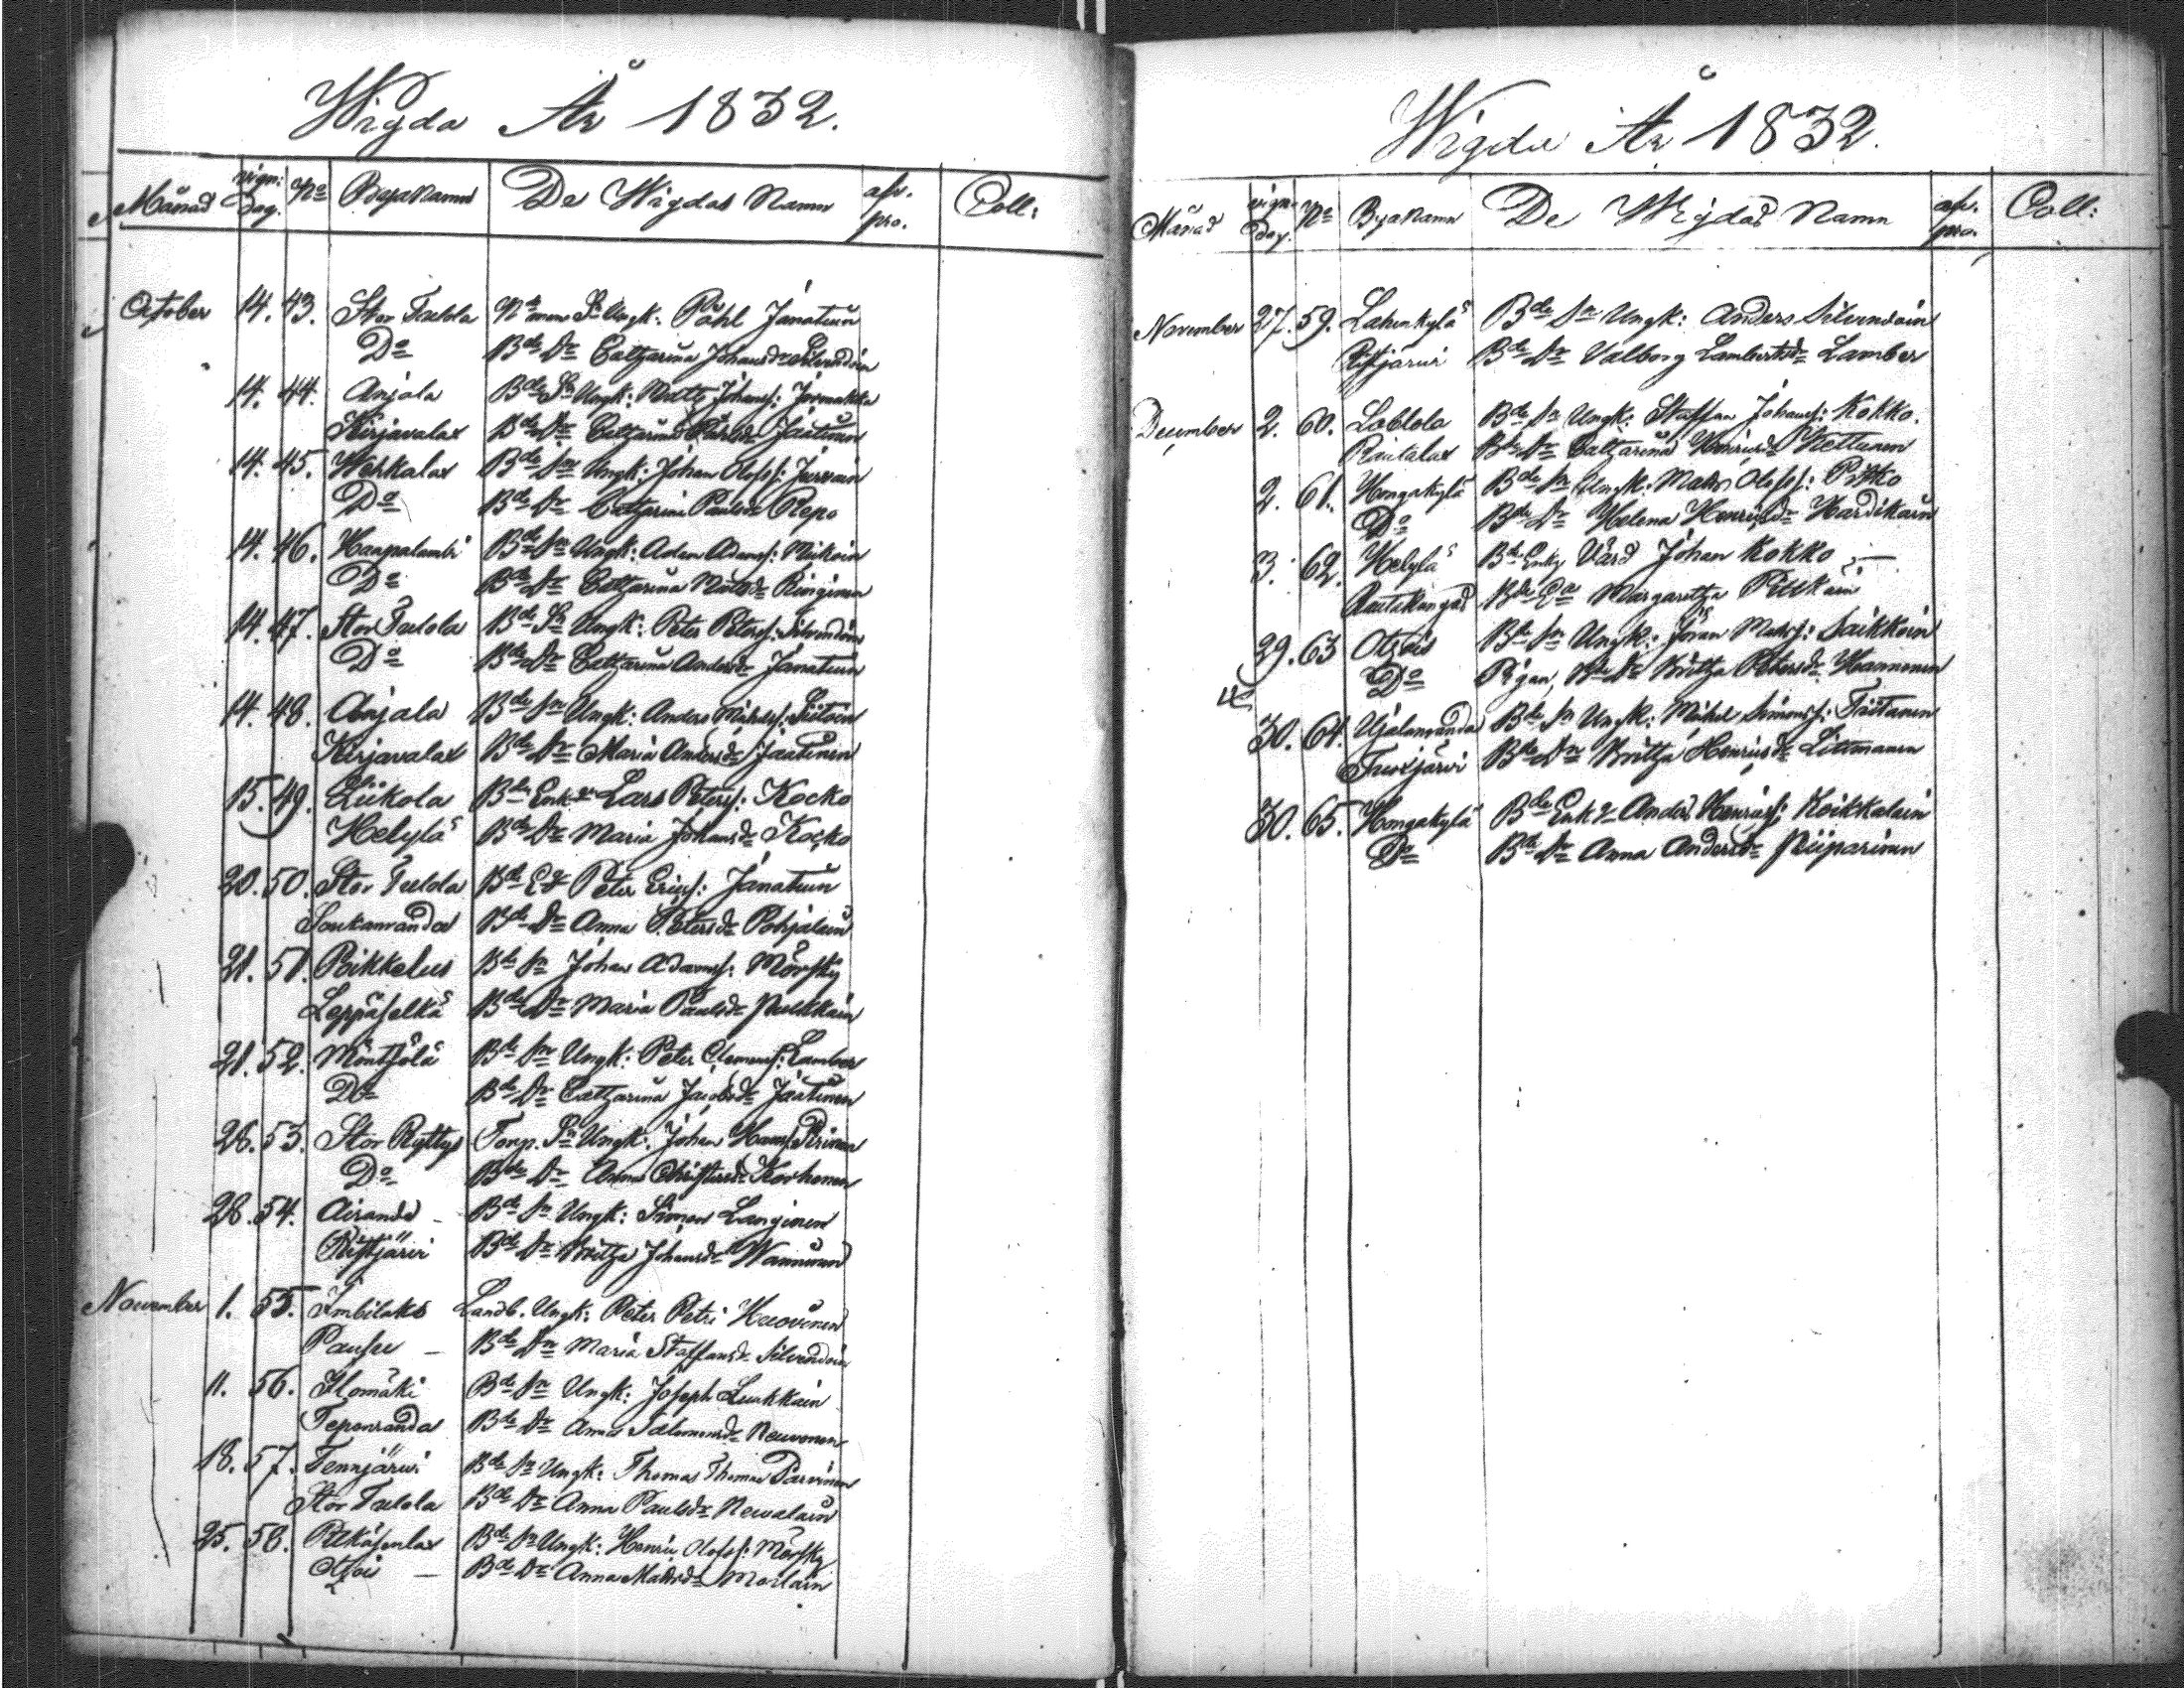 Wigda År 1832.
Månad vign: Dag. No Byanamn De Wigdas Namn afv. pro. Coll:
October 14. 43. Stor Tulola Ungk: Påhl Jänatuin
Do Bde Dr Catharina Johansdr Silvendoin
14. 44. Anjala Bde Sn Ungk: Matts Johanss: Jormakka
Kirjavalax Bde Dr Catharina Jäätinen
14. 45. Werkalax Bde Sn Ungk: Johan Olofss:
Do Bde Dr Catharina Paulsdr Repo
14. 46. Haapalambi Bde Sn Ungk: Adam Adamss: Mikoin
Do Bde Dr Catharina Mattsdr Ringinen
14. 47. Stor Tulola Bde Sn Ungk: Peter Peterss: Silvendoin
Do Bde Dr Catharina Andersdr Jänatuin
14. 48. Anjala Bde Sn Ungk: Anders Michelss:
Kirjavalax Bde Dr Maria Andersdr Jäätinen
15. 49. Liikola Bde Enkl Lars Peterss: Kocko
Helylä Bde Dr Maria Johansdr Kocko
20. 50. Stor Tulola Bde Peter Ericss: Jänatuin
Soukanranda Bde Dr Anna Petersdr Pohjalain
21. 51. Rikkelus Bde Sn Johan Adamss: Mörsky
Leppäselkä Bde Dr Maria Paulsdr Pulkkain
21. 52. Möntsölä Bde Sn Ungk: Peter Clemenss: Lamber
Do Bde Dr Catharina Jacobsdr Jäätinen
28. 53. Stor Ryttys Torp. Sn Ungk: Johan Hanss: Pirinen
Do Bde Dr Anna Christersdr Korhonen
28. 54. Airanda Bde Sn Ungk: Simon Langinen
Ristjärvi Bde Dr Britha Johansdr Wanninen
November 1. 55. Imbilaks Landb. Ungk: Peter Petri Huovinen
Paussu Bde Dr Maria Staffansdr Silvendoin
11. 56. Ilomäki Bde Sn Ungk: Joseph Luukkain
Teponranda Bde Dr Anna Salomonsdr Neuvonen
18. 57. Tennjärvi Bde Sn Ungk: Thomas Thomas Parvinen
Stor Tulola Bde Dr Anna Paulsdr Nevalain
25. 58. Pitkäsenlax Bde Sn Ungk: Henric Olofss: Mörsky
Otsois Bde Dr Anna Mattsdr
Wigda År 1832.
Månad vign: Dag. No Byanamn De Wigdas Namn afv. pro. Coll:
November 27. 59. Lahenkylä Bde Sn Ungk: Anders Silvendoin
Ristjärvi Bde Dr Valborg Lambertsdr Lamber
December 2. 60. Loblola Bde Sn Ungk: Staffan Johanss: Kokko.
Rautalax Bde Dr Catharina Henricsdr Kettunen
2. 61. Hongakylä Bde Sn Ungk: Matts Olofss: Pitko
Do Bde Dr Helena Henricsdr Hardikain
3. 62. Helylä Bde Enkl Värd Johan Kokko
Rautakangas Bde Ea Margaretha Pitkäin
29. 63 Otsois Bde Sn Ungk: Jöran Mattss: Saikkoin
Do Pigan, Bde Dr Britha Petersdr Hannonen
30. 64. Ujalanranda Bde Sn Ungk: Michel Simonss: Tiitanen
Tuoxjärvi Bde Dr Britha Henricsdr Littmanen
30. 65. Hongakylä Bde Enkl Anders Henricss: Koikkalain
Do Bde Dr Anna Andersdr Piiparinen